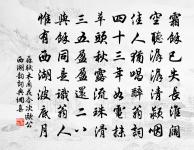 霜餘已失長淮闊
空聽潺潺清潁咽
佳人猶唱醉翁詞
四十三年如電抹
草頭秋露流珠滑
三五盈盈還二八
與餘同是識翁人
惟有西湖波底月
蘇軾木蘭花令次歐公
西湖韻